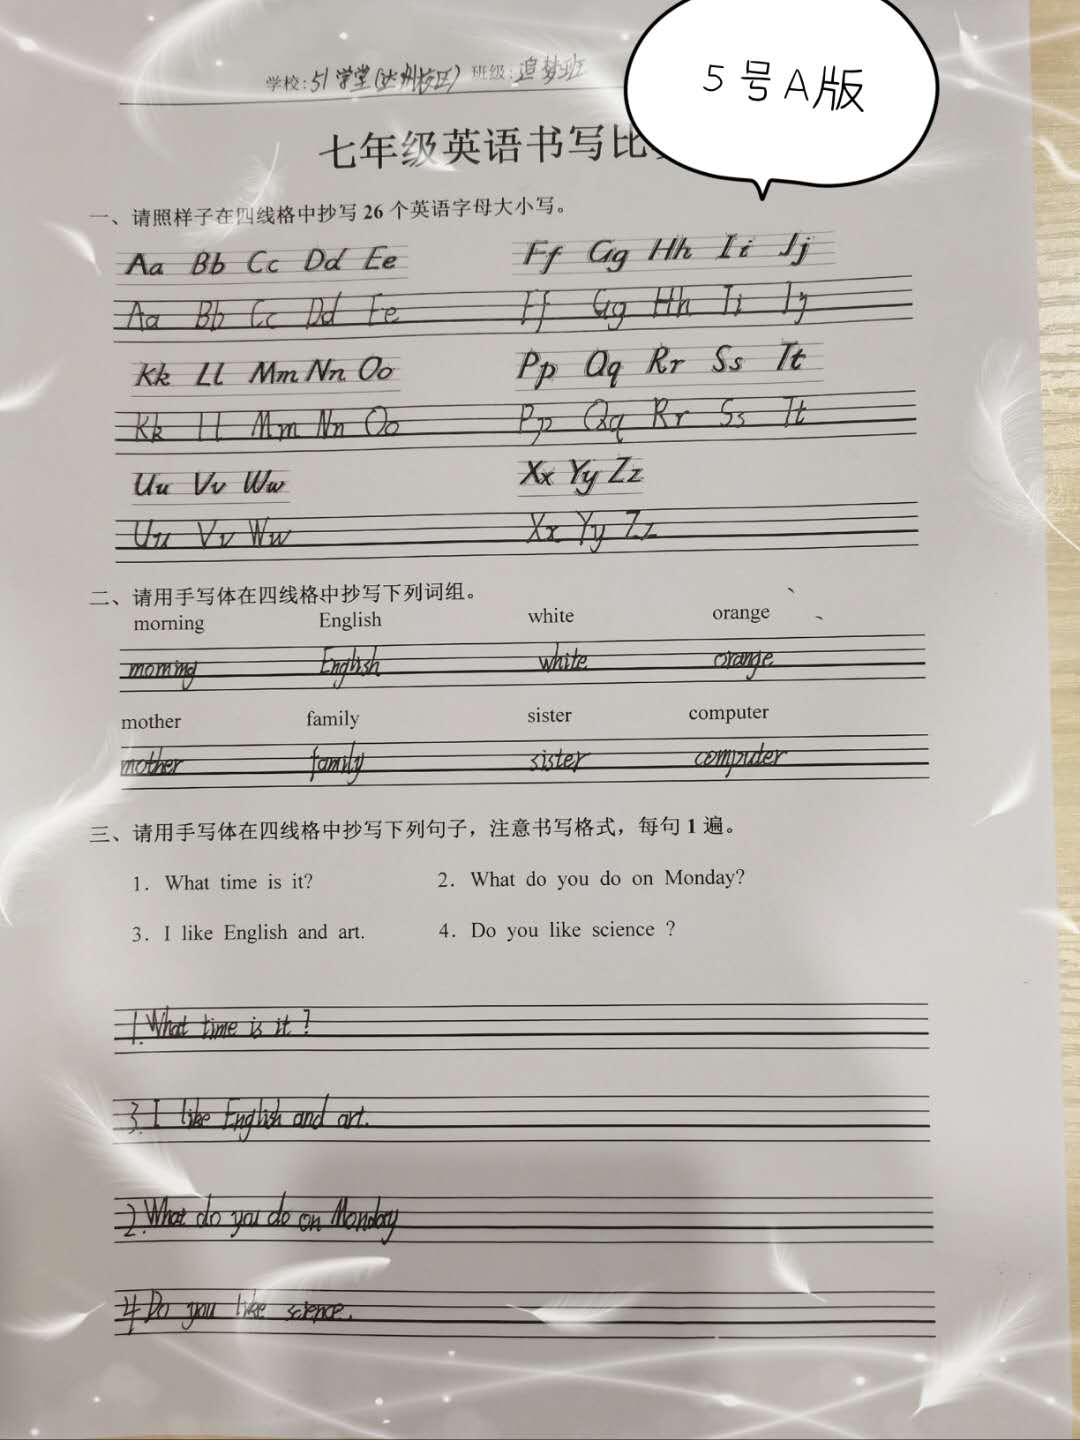 5号A版
学校:51学堂(达州校区) 班级:追梦班
七年级英语书写比
一、请照样子在四线格中抄写26个英语字母大小写。
Aa Bb Cc Dd Ee Ff Gg Hh Ii Jj
Aa Bb Cc Dd Ee Ff Gg Hh Ii Jj
Kk Ll Mm Nn Oo Pp Qq Rr Ss Tt
Kk Ll Mm Nn Oo Pp Qq Rr Ss Tt
Uu Vv Ww Xx Yy Zz
Uu Vv Ww Xx Yy Zz
二、请用手写体在四线格中抄写下列词组。
morning English white orange
morning English white orange
mother family sister computer
mother family sister computer
三、请用手写体在四线格中抄写下列句子，注意书写格式，每句1遍。
1. What time is it? 2. What do you do on Monday?
3. I like English and art. 4. Do you like science ?
1. What time is it ?
3. I like English and art.
2. What do you do on Monday
4 Do you like science.